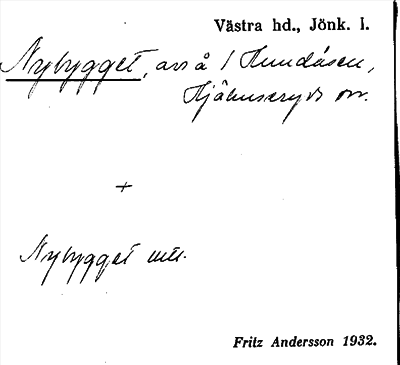 Västra hd., Jönk. l.
Nybygget, avs å 1 Hundåsen,
Hjälmseryds sn.
+
Nybygget
Fritz Andersson 1932.